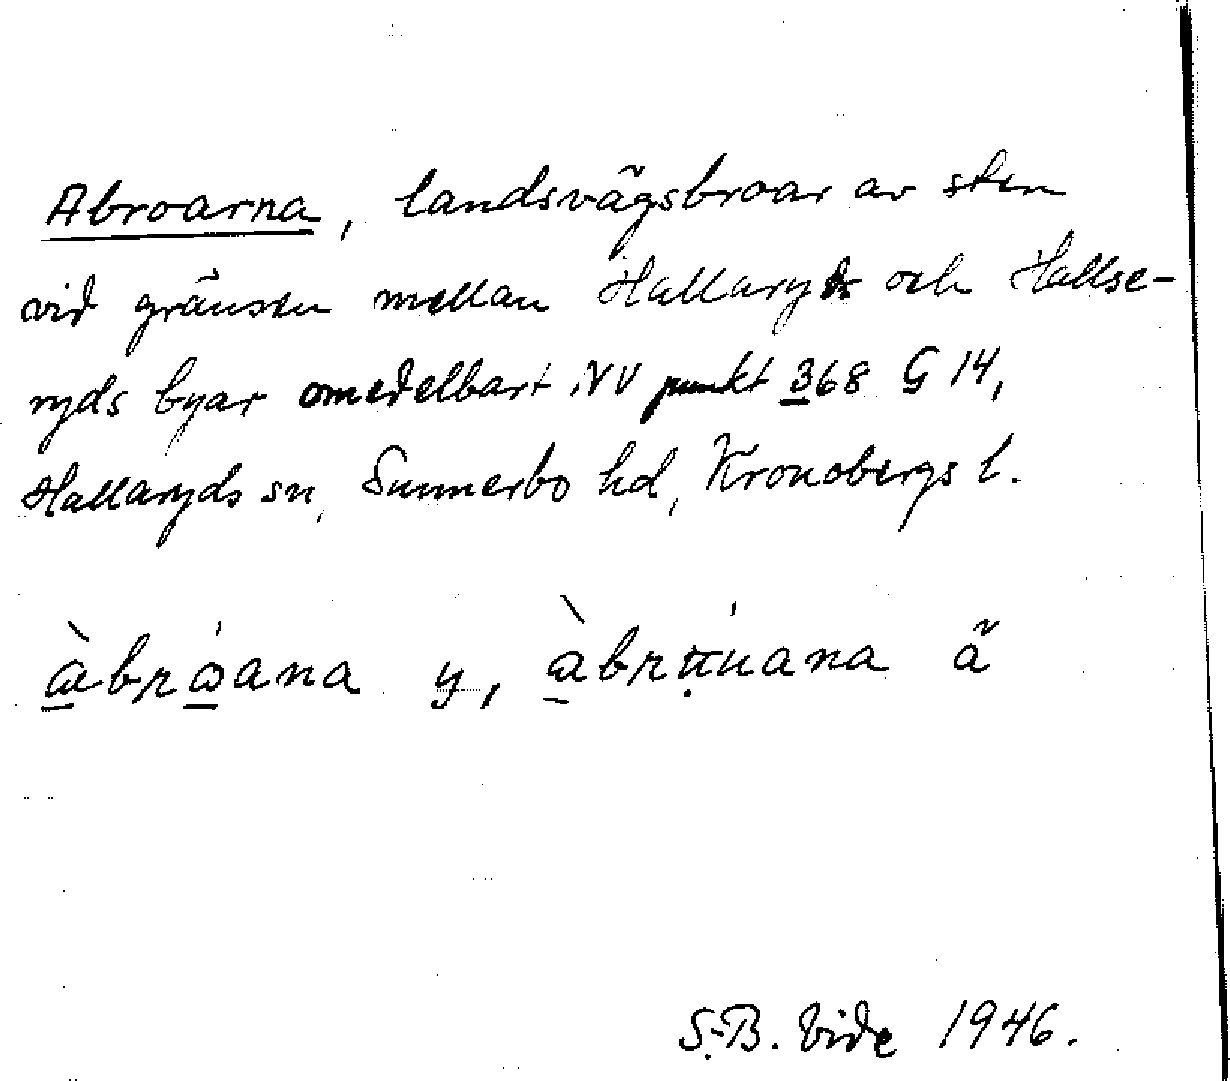 Abroarna, landsvägsbroar av sten
vid gränsen mellan Hallaryds och Hallse-
ryds byar omedelbart NV punkt 368 G 14,
Hallaryds sn, Sunnerbo hd, Kronobergs l.
y, ä
S.-B. Vide 1946.